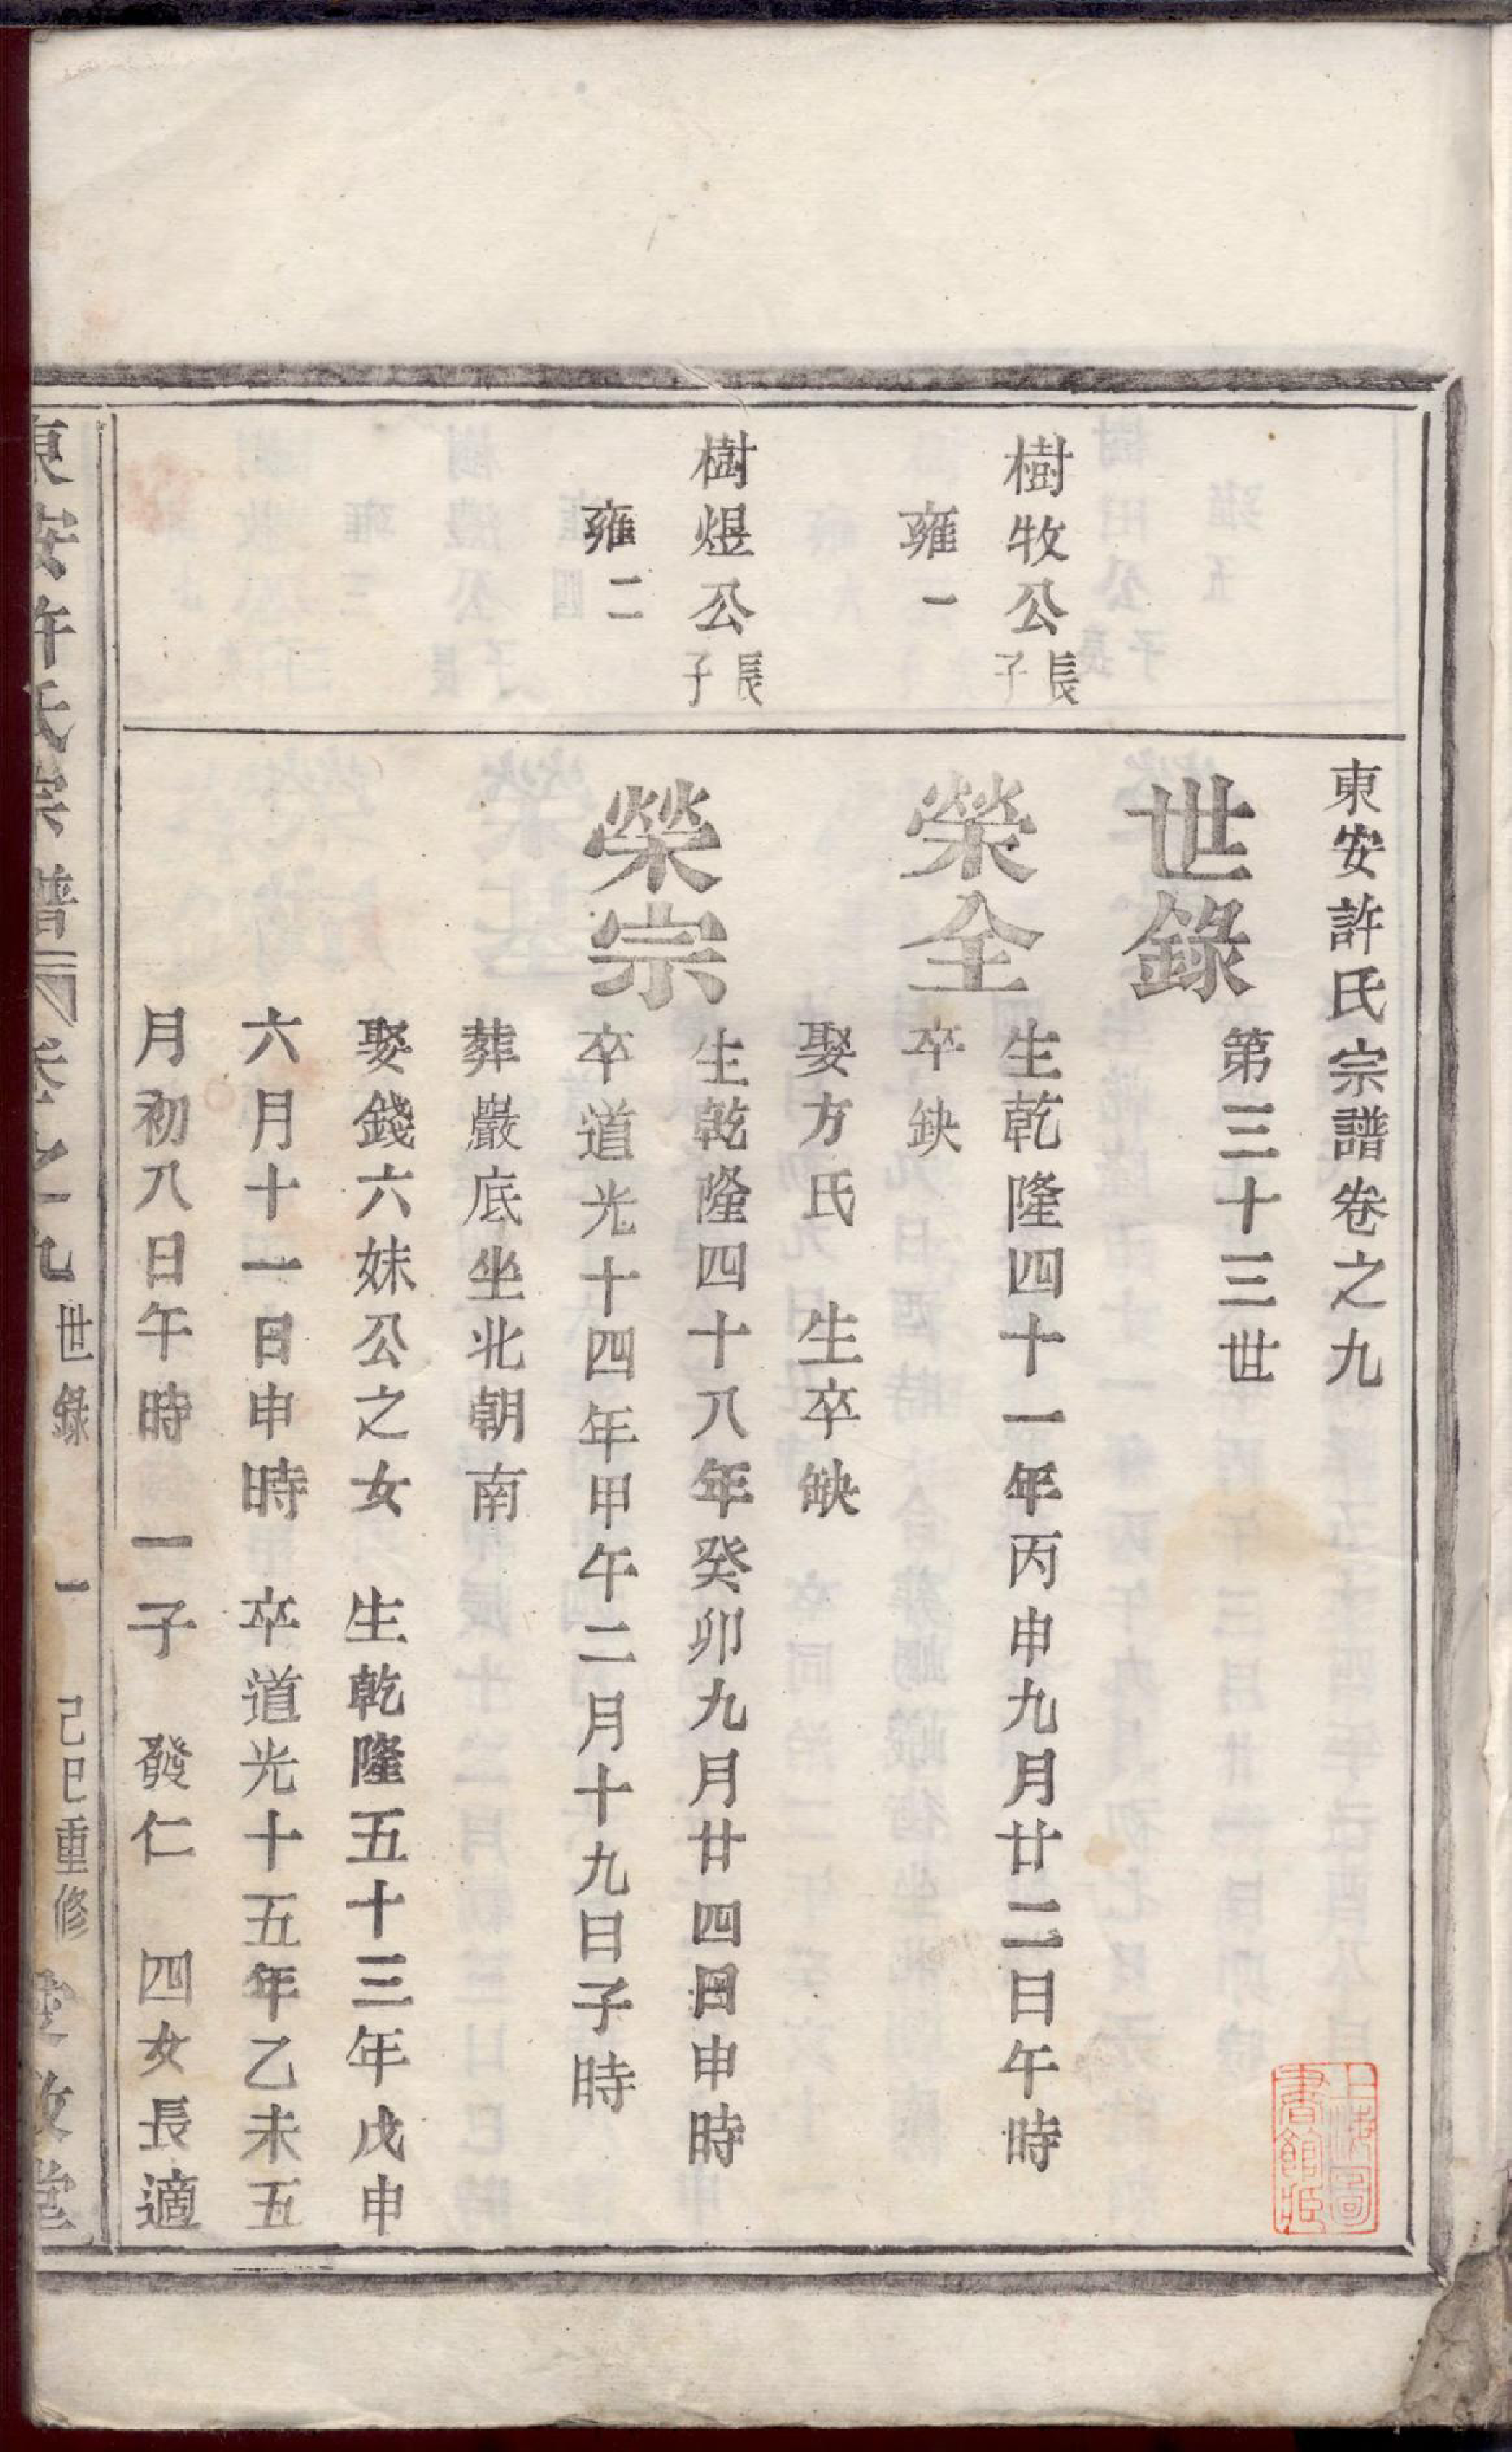 東安許氏宗譜卷之九
世錄
第三十三世
樹牧公長子
雍一
榮全
生乾隆四十一年丙申九月廿二日午時
卒缺
娶方氏 生卒缺
樹煜公長子
雍二
榮宗
生乾隆四十八年癸卯九月廿四日申時
卒道光十四年甲午二月十九日子時
葬巖底坐北朝南
娶錢六妹公之女 生乾隆五十三年戊申
六月十一日申時 卒道光十五年乙未五
月初八日午時 一子 發仁 四女長適
東安許氏宗譜 卷之九 世錄 一 己巳重修 敦堂
上海圖書館藏